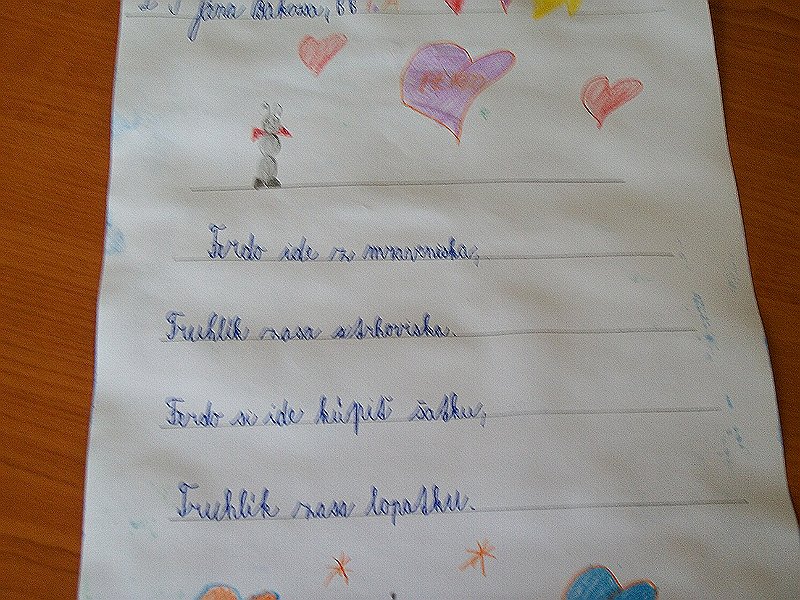 Jána Bakossa, BB
FERDO
Ferdo ide z mraveniska,
Truhlík zasa z trhoviska.
Ferdo si ide kúpiť šatku,
Truhlík zasa lopatku.